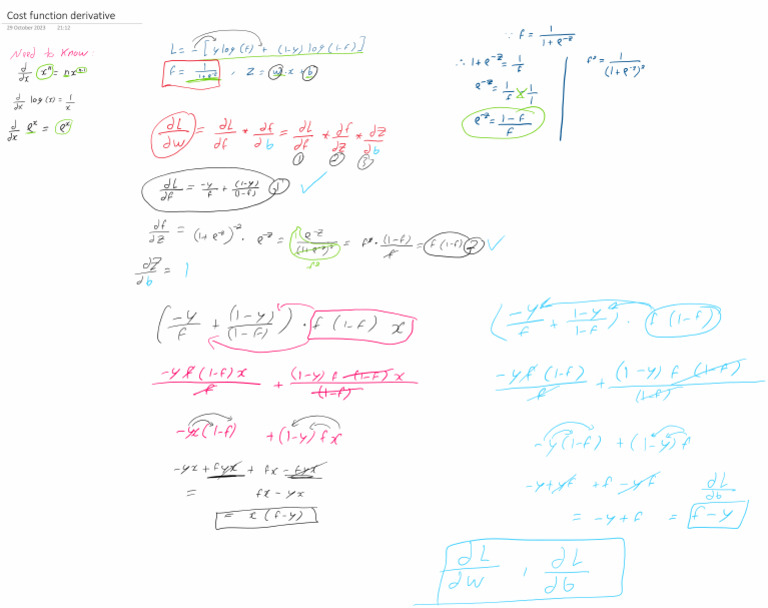 Cost function derivative
29 October 2023 21:12
Need to Know:
d/dx x^n = nx^(n-1)
d/dx log(x) = 1/x
d/dx e^x = e^x
L = -[y log(f) + (1-y) log(1-f)]
f = 1/(1+e^-z) , z = w·x + b
∵ f = 1/(1+e^-z)
∴ 1+e^-z = 1/f
e^-z = 1/f × 1/1
e^-z = (1-f)/f
f² = 1/(1+e^-z)²
∂L/∂w = ∂L/∂f * ∂f/∂b = ∂L/∂f * ∂f/∂z * ∂z/∂b
① ② ③
∂L/∂f = -y/f + (1-y)/(1-f) ① ✓
∂f/∂z = (1+e^-z)^-2 · e^-z = e^-z/(1+e^-z)² = f² · (1-f)/f = f(1-f) ② ✓
f²
∂z/∂b = 1
(-y/f + (1-y)/(1-f)) · f(1-f) x
-y f (1-f) x/f + (1-y) f (1-f) x/(1-f)
-yx(1-f) + (1-y) f x
-yx + fyx + fx - fyx
= fx - yx
= x (f-y)
(-y/f + (1-y)/(1-f)) · f(1-f)
-y f (1-f)/f + (1-y) f (1-f)/(1-f)
-y(1-f) + (1-y) f
-y + yf + f - yf
∂L/∂b
= -y + f = f-y
∂L/∂w , ∂L/∂b